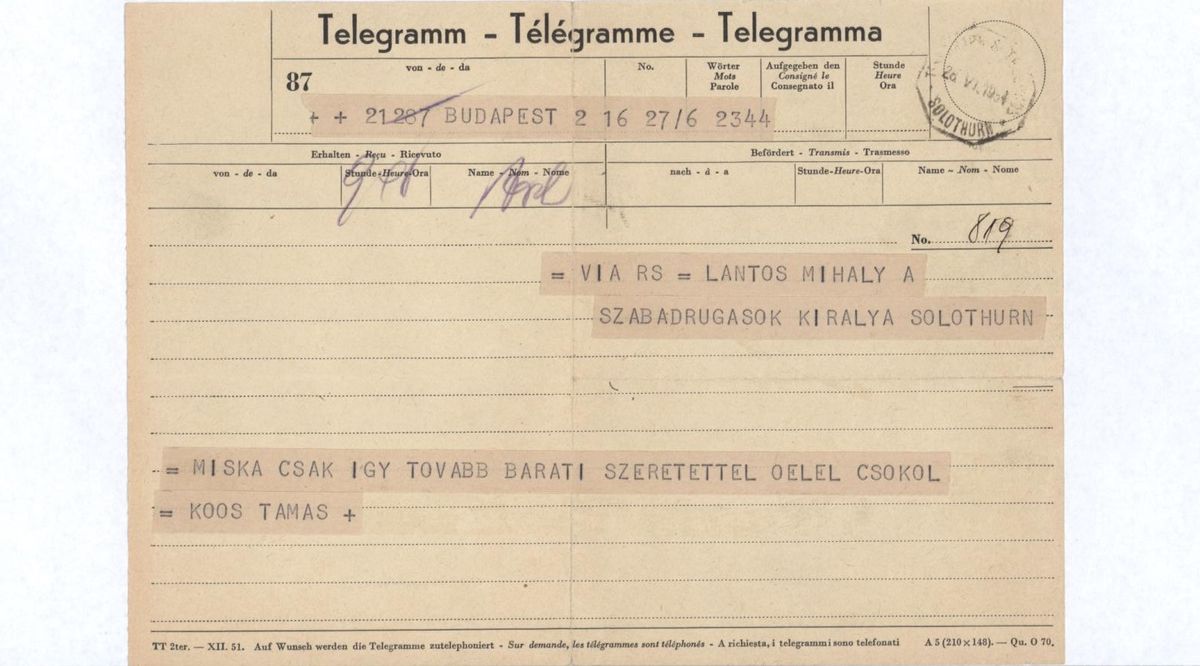 Telegramm - Télégramme - Telegramma
87
von - de - da
No.
Wörter
Mots
Parole
Aufgegeben den
Consigné le
Consegnato il
Stunde
Heure
Ora
+ + 21287 BUDAPEST 2 16 27/6 2344
SOLOTHURN
Erhalten - Reçu - Ricevuto
Befördert - Transmis - Trasmesso
von - de - da
Stunde-Heure-Ora
Name - Nom - Nome
nach - à - a
Stunde-Heure-Ora
Name - Nom - Nome
No. 819
= VIA RS = LANTOS MIHALY A
SZABADRUGASOK KIRALYA SOLOTHURN
= MISKA CSAK IGY TOVABB BARATI SZERETETTEL OELEL CSOKOL
= KOOS TAMAS +
TT 2ter. — XII. 51. Auf Wunsch werden die Telegramme zutelephoniert - Sur demande, les télégrammes sont téléphonés - A richiesta, i telegrammi sono telefonati A 5 (210 × 148). — Qu. O 70.